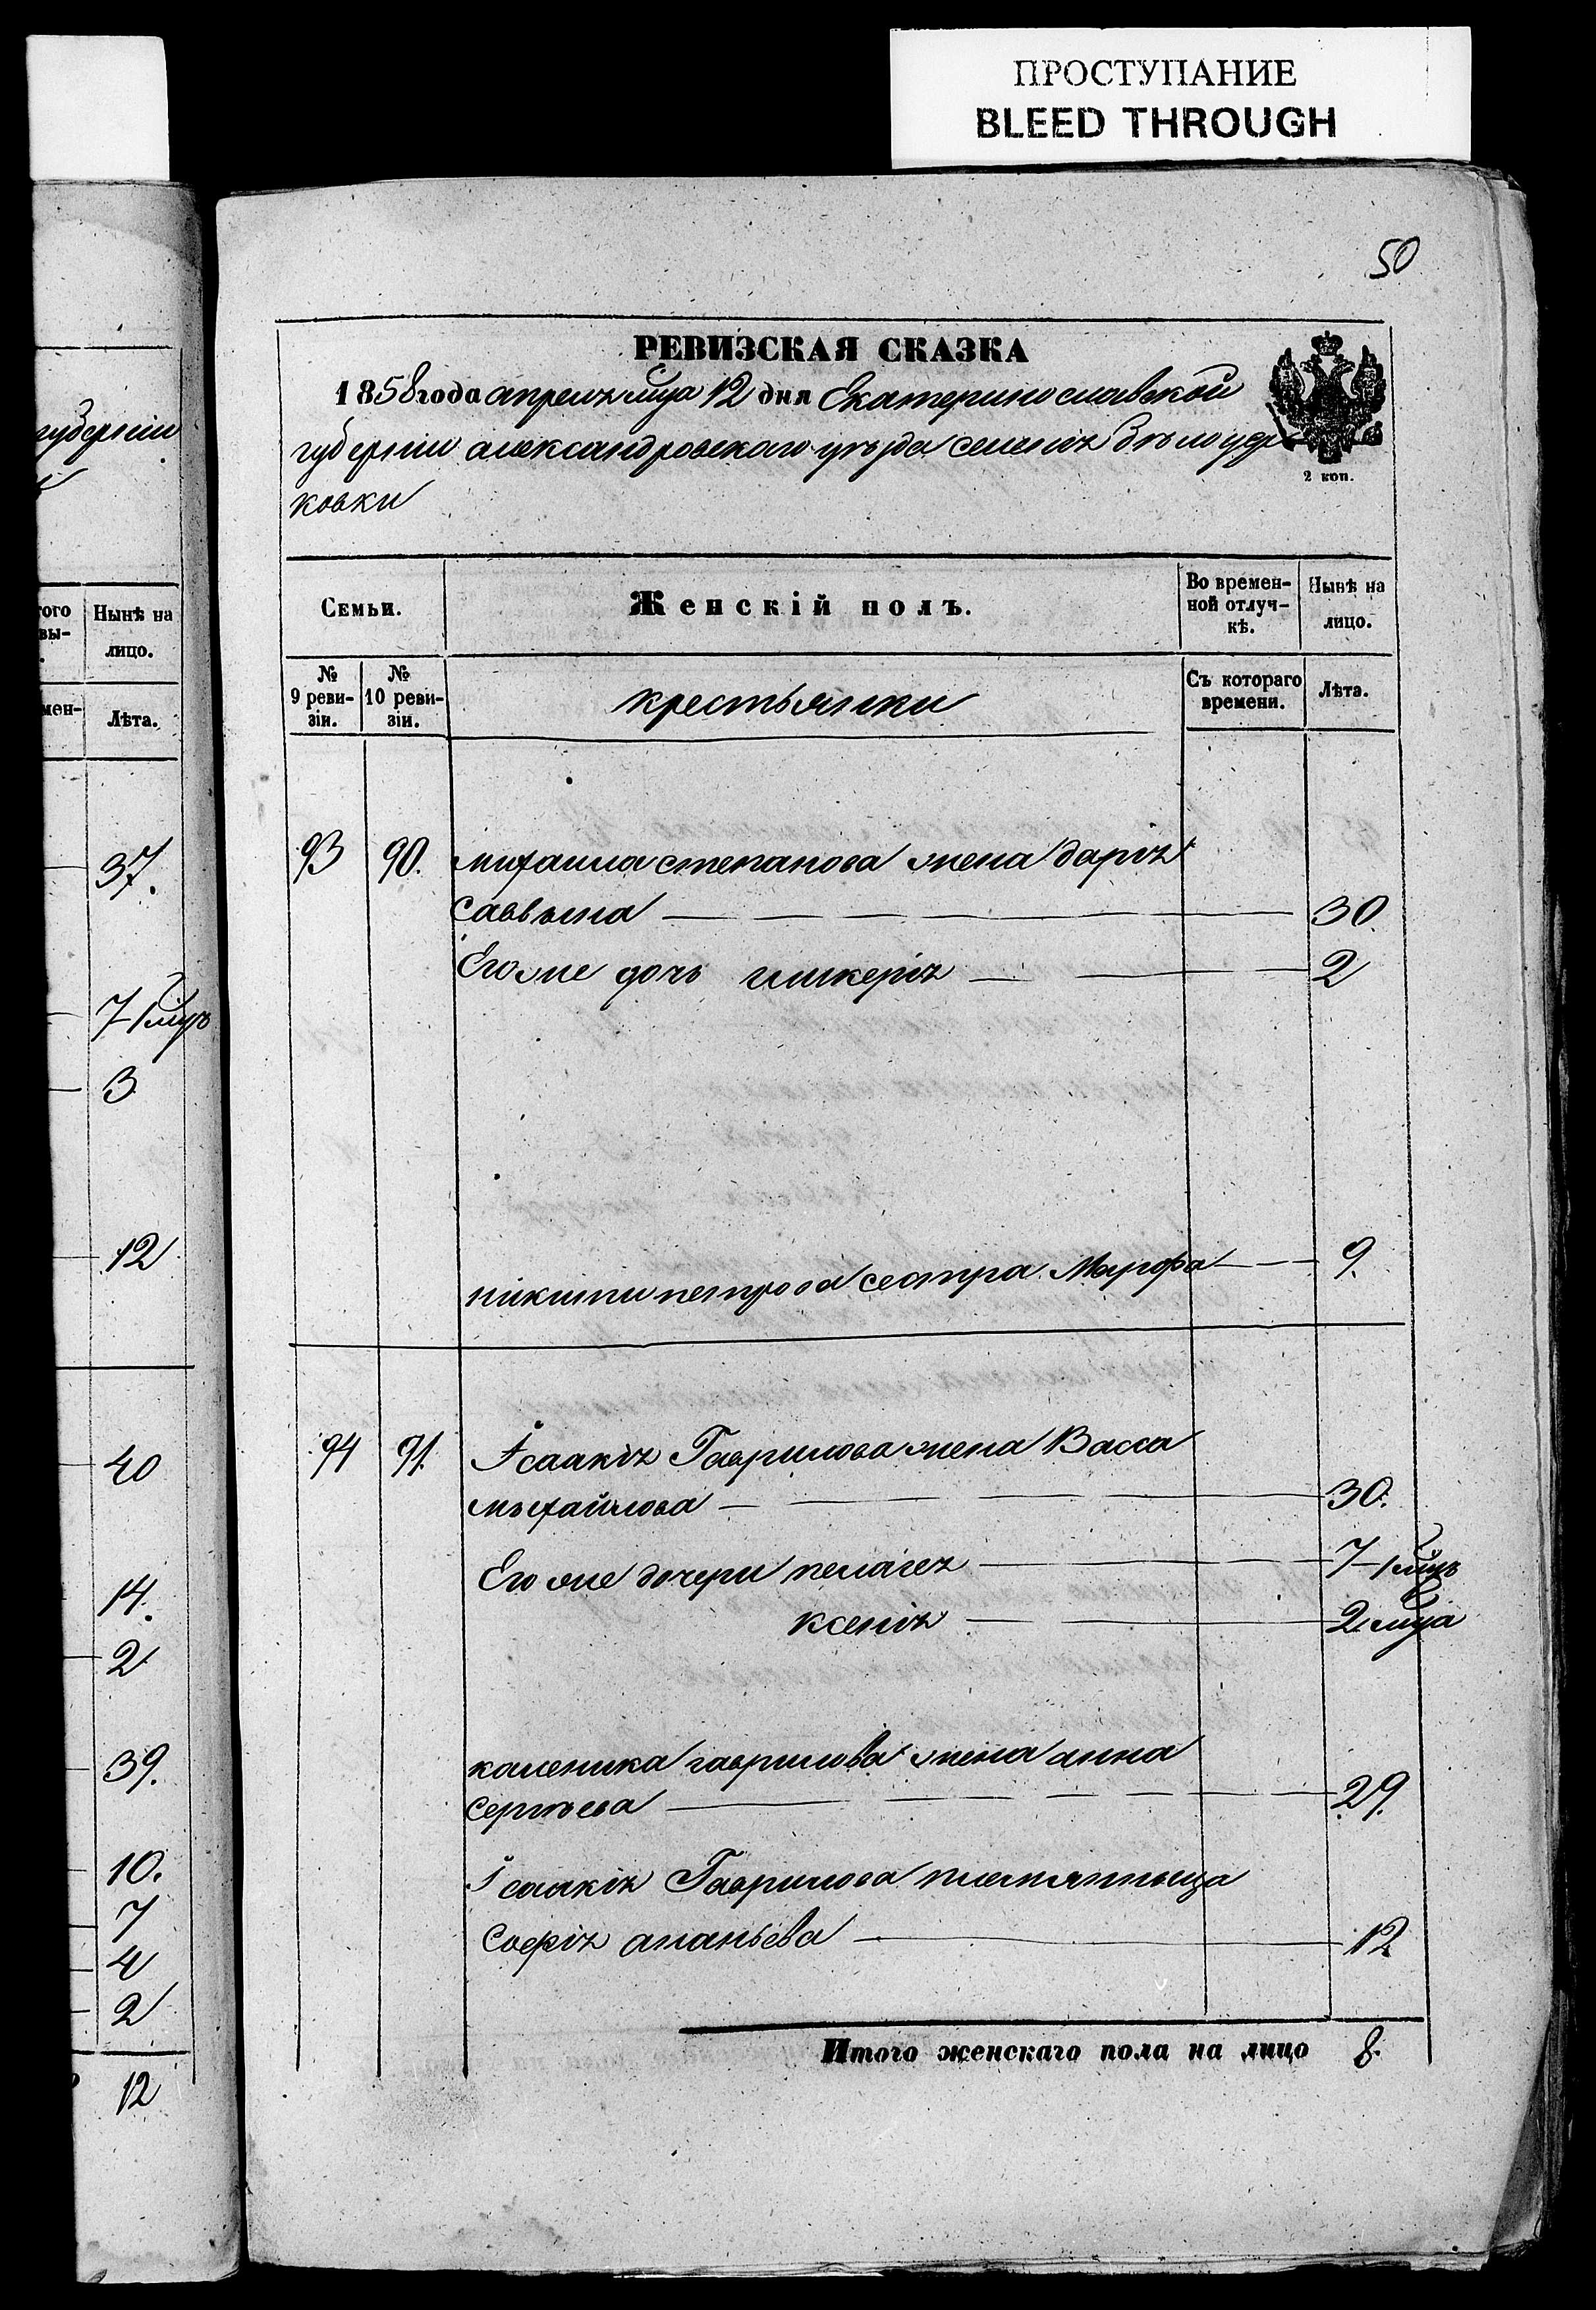 ПРОСТУПАНИЕ
BLEED THROUGH
50
РЕВИЗСКАЯ СКАЗКА
1858 года апреля мца 12 дня Екатеринославской
губернии александровского уѣзда селенія бѣлоцер
ковки
2 коп.
Семьи.
Женскій полъ.
Во времен-
ной отлуч-
кѣ.
Нынѣ на
лицо.
№
9 реви-
зіи.
№
10 реви-
зіи.
крестьянки
Съ котораго
времени.
Лѣта.
93 90. михаила степанова жена дарія
саввына 30.
Его же дочь гликерія 2
никиты петрова сестра Марфа 9.
94 91. Ісаакія Гаврилова жена Васса
михайлова 30.
Его же дочери пелагея 7-1 мцъ
ксенія 2 мца
каленика гаврилова жена анна
сергѣева 29.
Ісаакія Гаврилова племянныца
Софія ананьева 12
Итого женскаго пола на лицо 8.
губерніи
того
вы-
Нынѣ на
лицо.
мен-
Лѣта.
37.
7-1 мцъ
3
12
40
14.
2
39.
10.
7
4
2
12